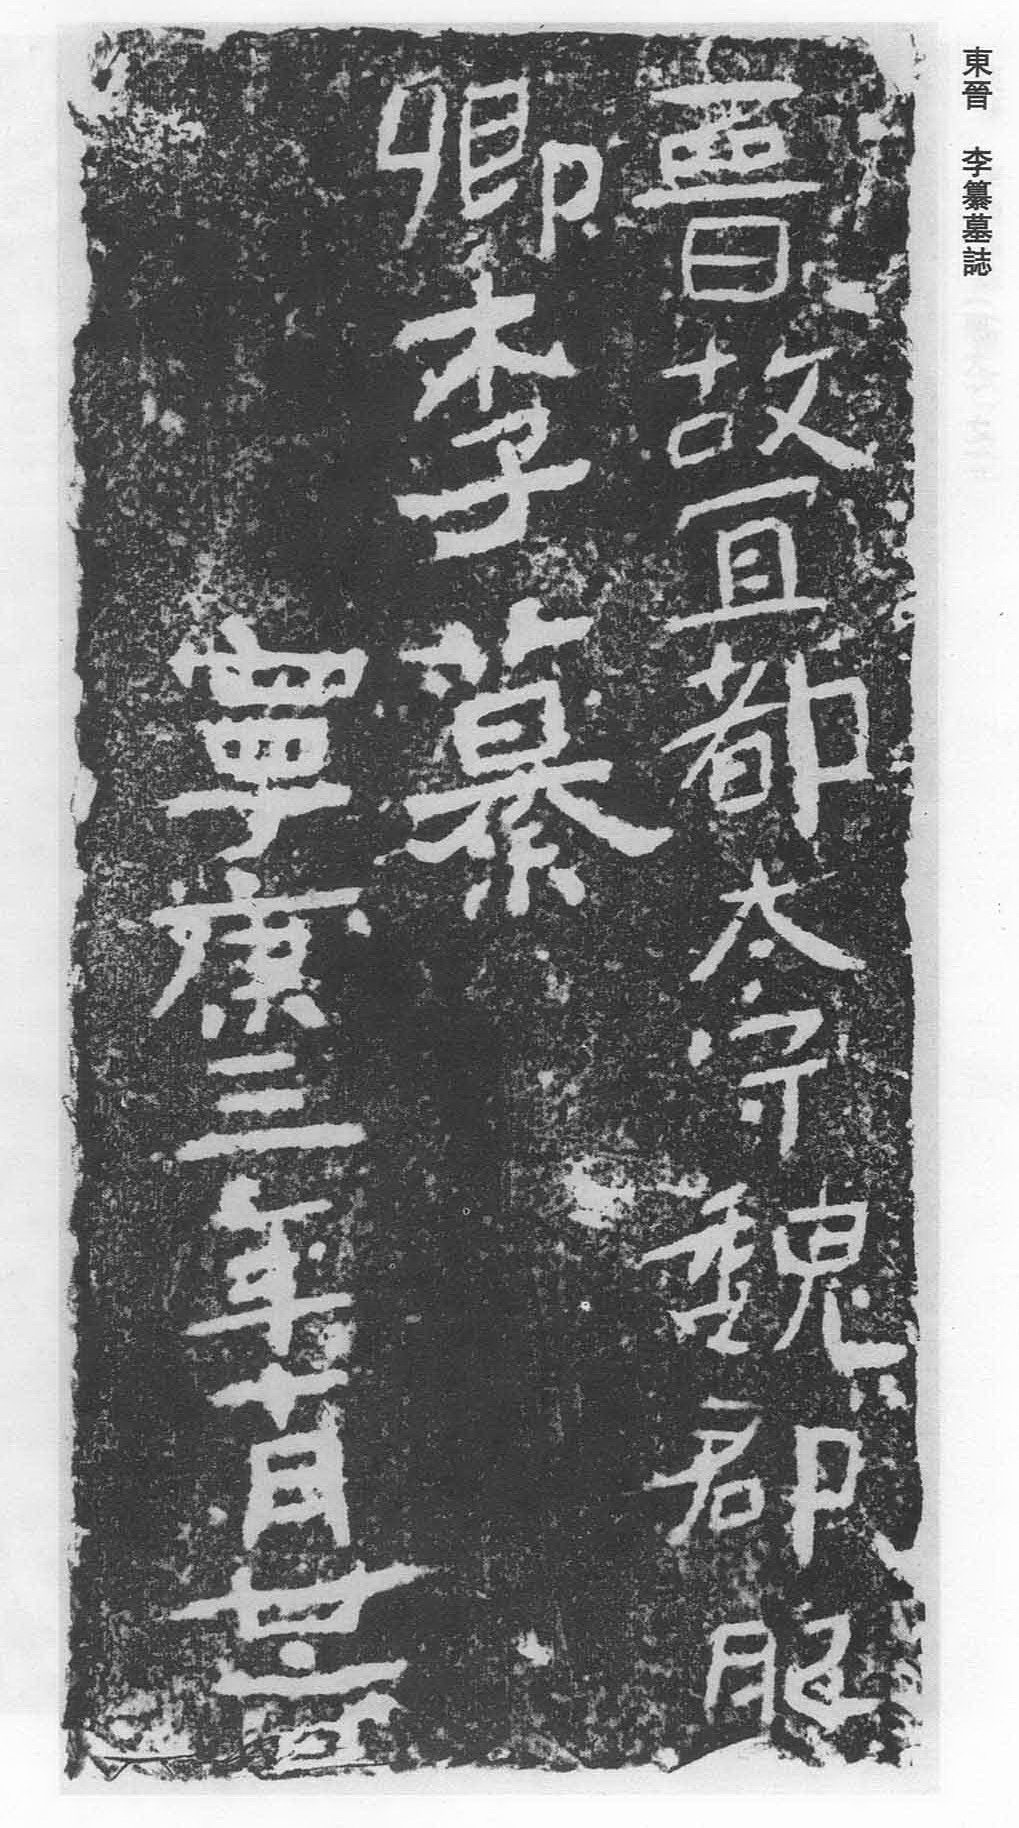 東晉 李纂墓誌
晉故宜都太守魏郡肥
鄉李纂
寧康三年十月廿六日